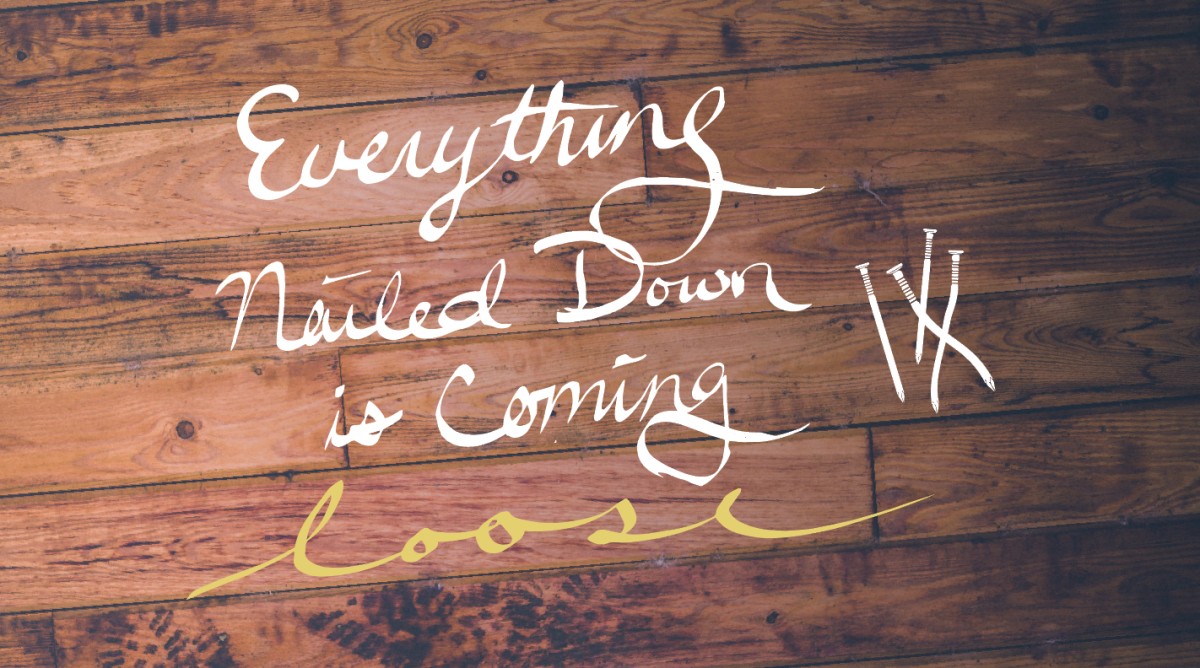 Everything
Nailed Down
is Coming
loose